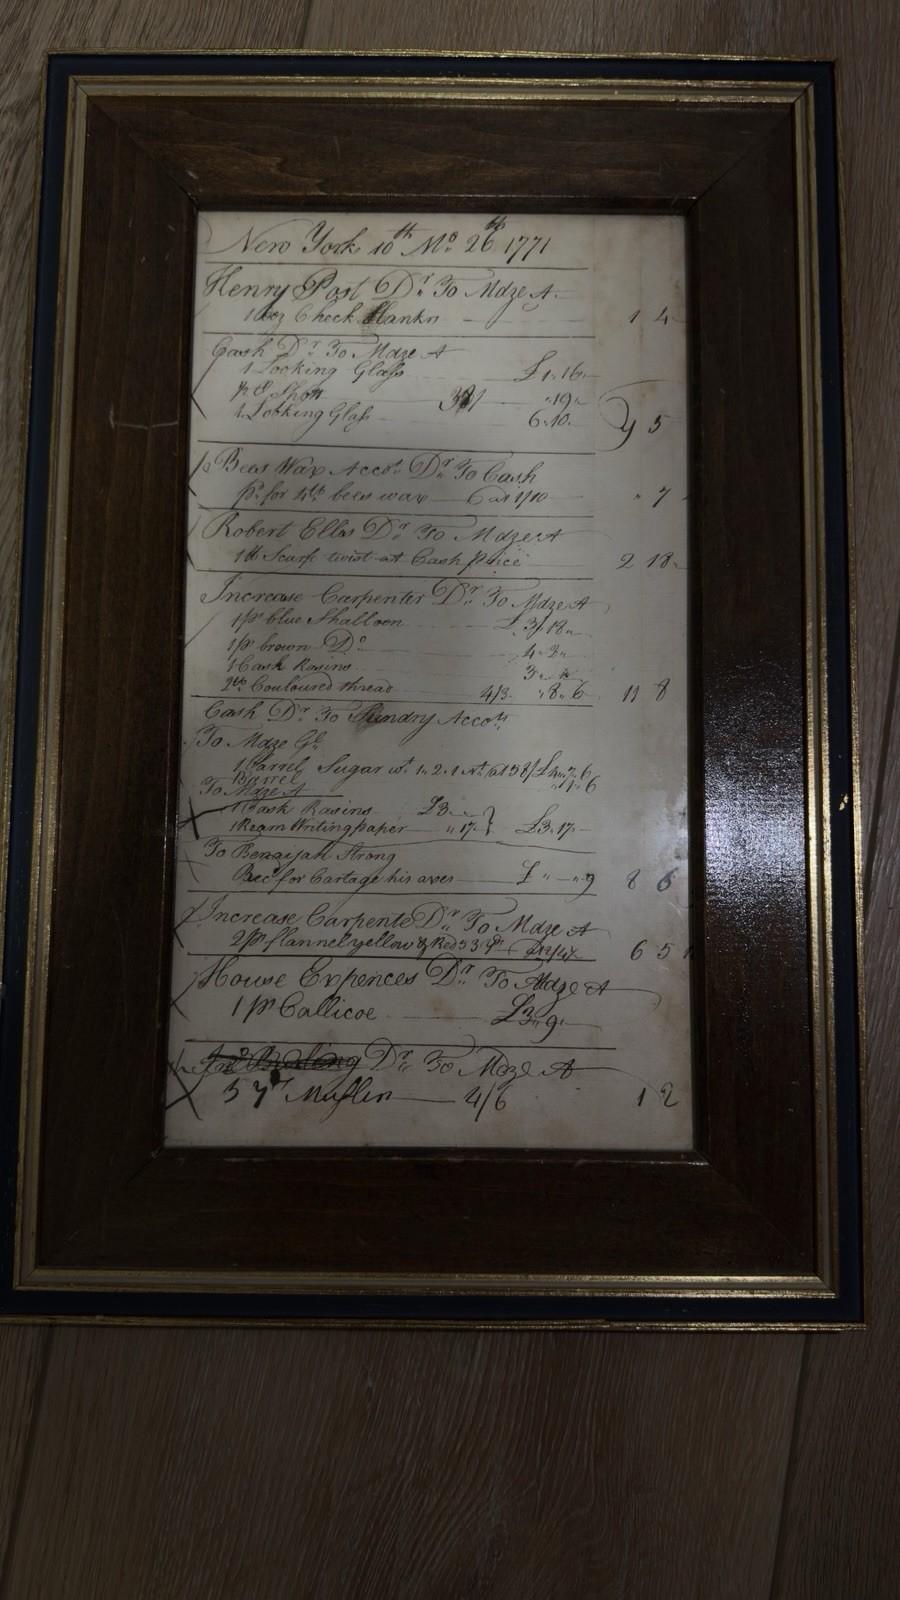 New York 10th Mo. 26th 1771
Henry Post Dr. To Mdze A
Check 1 4
Cash Dr. To Mdze A
1 Looking Glass £1"16"
"19"
1 Looking Glass 6"10" 9 5
Bees Wax Accot. Dr. To Cash
pd. for 4lb bees wax 1/10 " 7
Robert Ellis Dr. To Mdze A
1lb Scarfe twist at Cash price 2 18
Increase Carpenter Dr. To Mdze A
1ps blue Shalloon £3"18"
1ps brown Do. 4"3"
1 Cask Rasins 3"
2lb Couloured thread 4/3 "8"6 11 8
Cash Dr. To Sundry Accots
To Mdze Gl.
1 Barrel Sugar wt. 1"2"1 Nt.
Barrel
To Mdze A
1 Cask Rasins £3"
1 Ream Writing paper "17" } £3"17"
To Benajjah Strong
Rec for Cartage his axes £ " "9 8 6
Increase Carpenter Dr. To Mdze A
2ps flannel yellow & Red 6 5
House Expences Dr. To Mdze A
1 ps Callicoe £3"9"
Dr. To Mdze A
5 yd Muslin 4/6 1 2